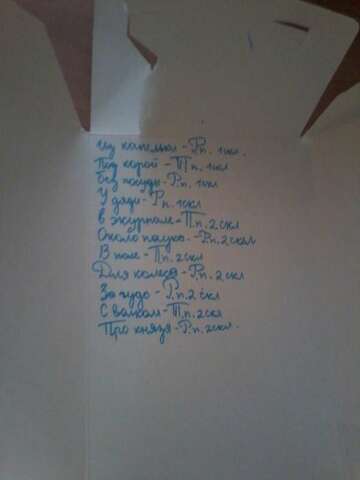 из капельки - Р.п. 1 скл.
Под корой - Т.п. 1 скл
без посуды - Р.п. 1 скл
У дяди - Р.п. 1 скл
в журнале - П.п. 2 скл
Около - Р.п. 2 скл
В поле - П.п. 2 скл
Для колеса - Р.п. 2 скл
За чудо - Р.п. 2 скл
С волком - Т.п. 2 скл
Про князя - Р.п. 2 скл.